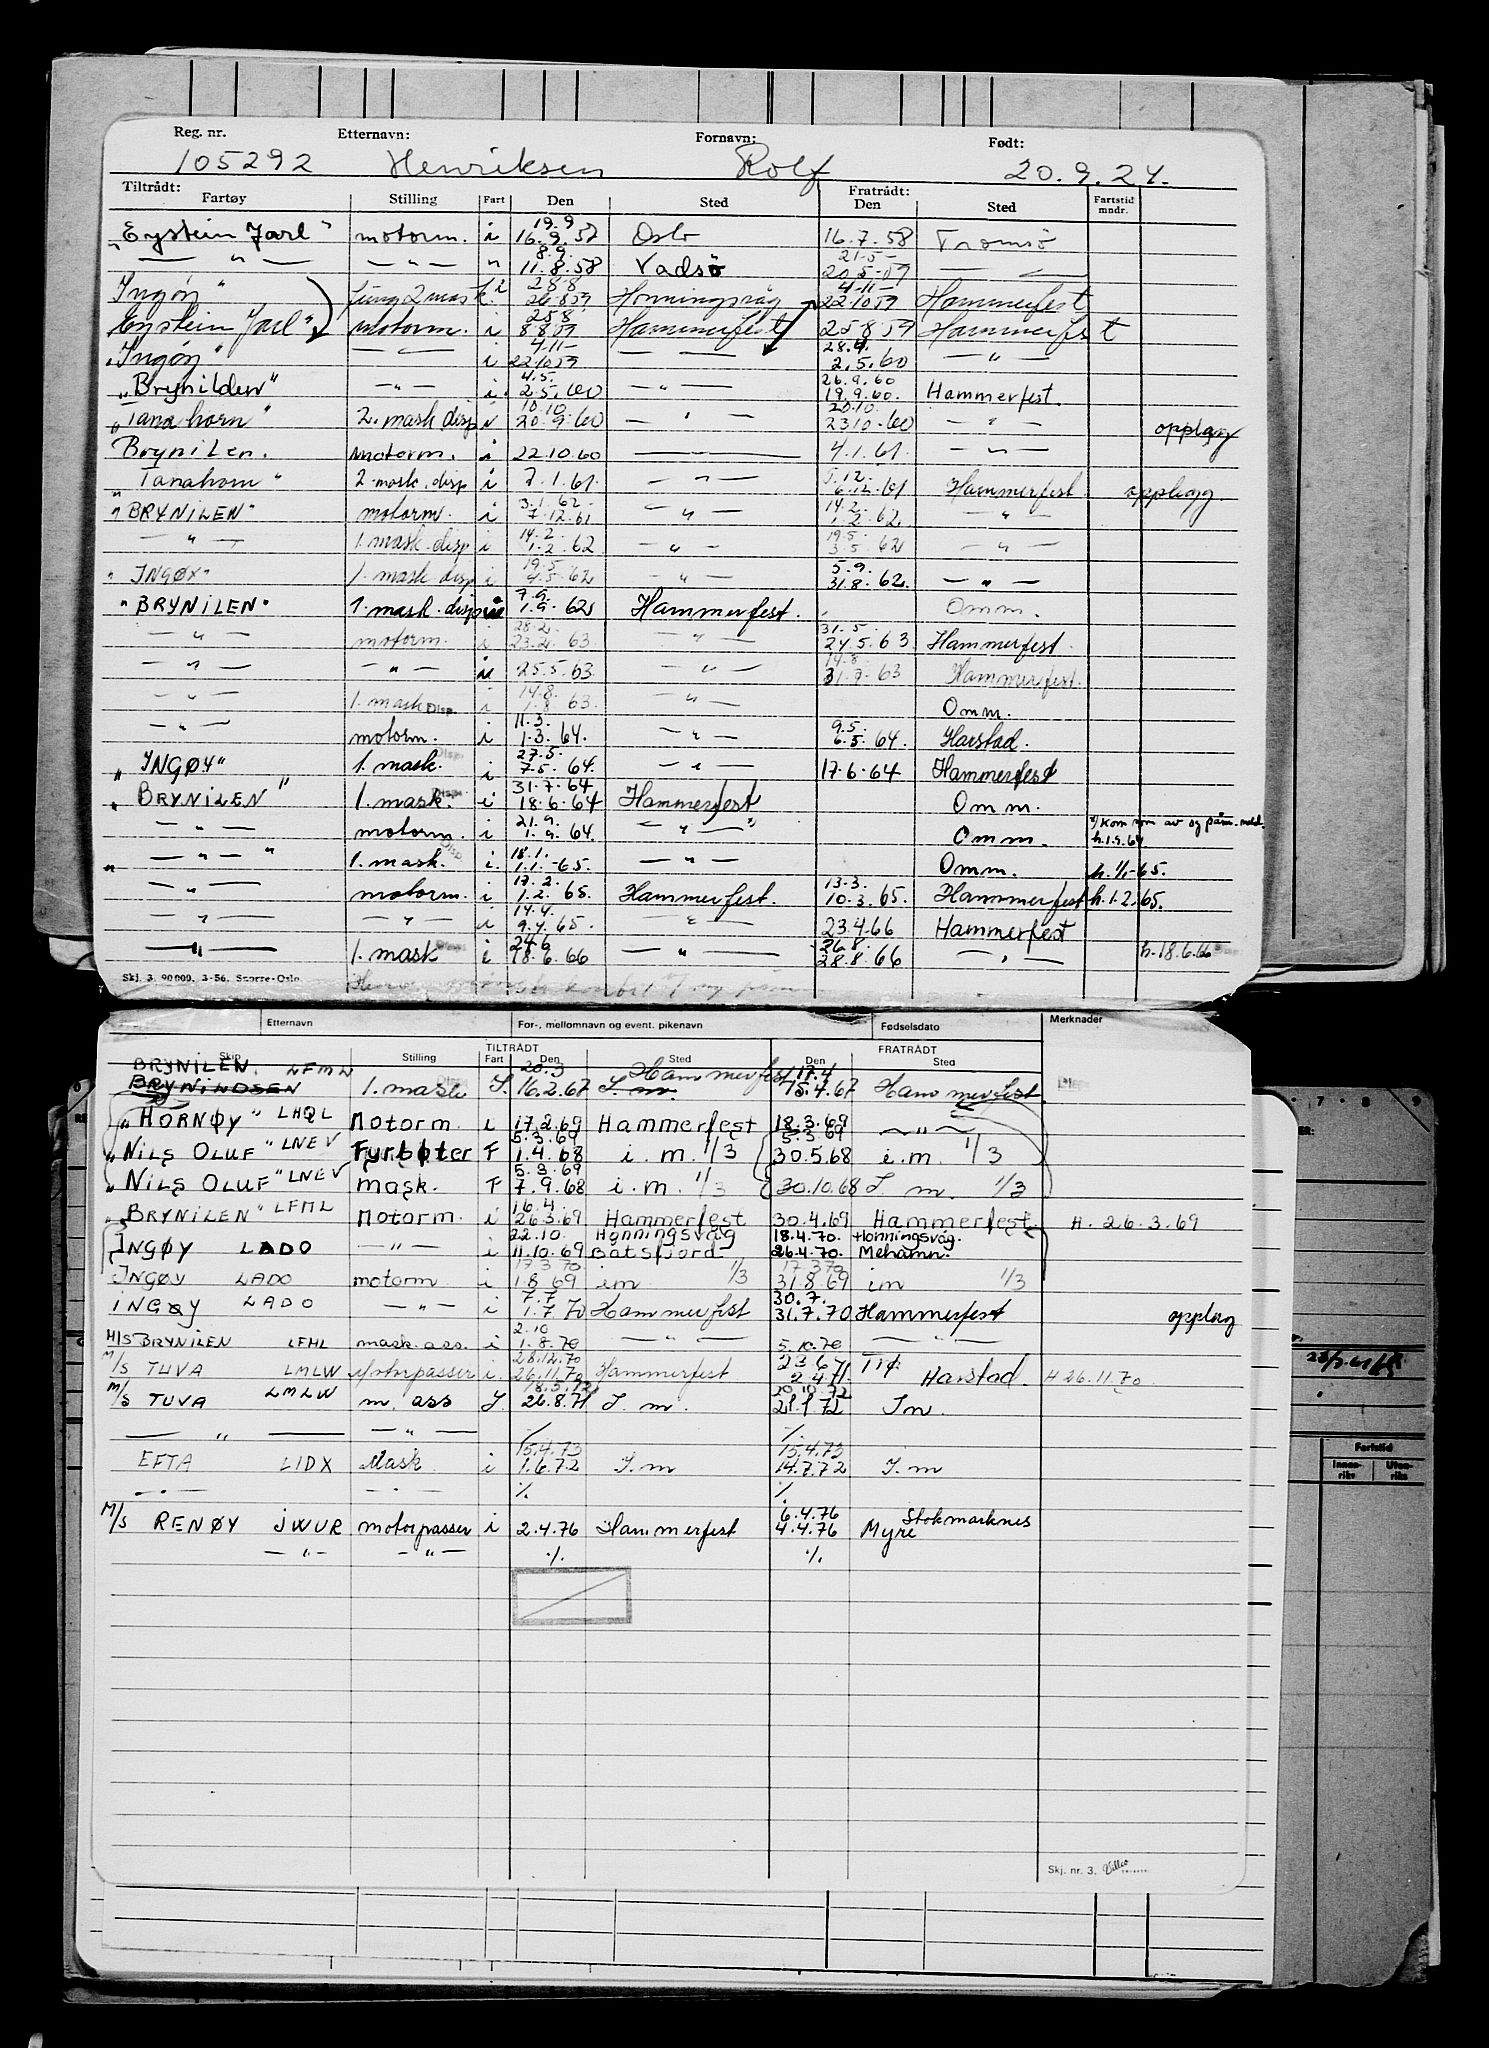 Reg. nr. Etternavn: Fornavn: Født:
105292 Henriksen Rolf 20.9.24.
Tiltrådt: Fratrådt:
Fartøy Stilling Fart Den Sted Den Sted Fartstid mndr.
19.9
"Eystein Jarl" motorm. i 16.9.57 Oslo 16.7.58 Tromsø
8.9. 21.5-
— " — — " — " 11.8.58 Vadsø 20.5-59 — —
28.8 4.11-
Ingøy" fung 2 mask. i 26.8.59 Honningsvåg 22.10.59 Hammerfest
25.8
Eystein Jarl" motorm. i 8.8.59 Hammerfest 25.8.59 Hammerfest
4.11- 28.4.
"Ingøy" — " — i 22.10.59 — — 2.5.60 — " —
4.5. 26.9.60
"Brynilden" — " — i. 2.5.60 — " — 19.9.60. Hammerfest.
10.10. 20.10.
"Tanahorn" 2. mask disp i 20.9.60 — " — 23.10.60 — " — opplag
Brynilen. motorm. i 22.10.60 — 4.1.61. — " —
5.12.
"Tanahorn" 2. mask. disp i 7.1.61. — " — 6.12.61 Hammerfest opplegg.
3.1.62. 14.2.
"BRYNILEN" motorm. i 7.12.61 — " — 1.2.62 — " —
14.2. 19.5.
— " — 1. mask. disp i 1.2.62 — " — 3.5.62 — " —
19.5 5.9.
"INGØY" 1. mask disp i 4.5.62 — " — 31.8.62. — " —
7.9.
"BRYNILEN" 1. mask. disp i 1.9.62 Hammerfest. Omm.
28.2. 31.5.
— " — motorm. i 23.2.63 — " — 24.5.63 Hammerfest.
14.8.
— " — — " — i 25.5.63 — " — 31.7.63 Hammerfest.
14.8.
— " — 1. mask Disp. i 1.8.63. — " — Omm.
11.3. 9.5.
— " — motorm. i 1.3.64. — " — 6.5.64. Harstad.
27.5.
"INGØY" 1. mask. Disp. i 7.5.64. — " — 17.6.64 Hammerfest
31.7.64
"BRYNILEN" 1. mask. Disp. i 18.6.64 Hammerfest Omm.
21.9.
— " — motorm. i 1.9.64. — " — Omm. h.1.9.64
18.1.
— " — " 1. mask. Disp i. 1.1.-65. — " — Omm. h. 1/1-65.
17.2. 13.3.
— " — motorm. i 1.2.65. Hammerfest. 10.3.65. Hammerfest h.1.2.65.
14.4.
— " — — " — i 9.4.65. — " — 23.4.66 Hammerfest
24.6 26.8.
— " — 1. mask Disp i 18.6.66 — " — 28.8.66 — " — h.18.6.66
Skj. 3. 90 000. 3-56. Sporre-Oslo
Etternavn For-, mellomnavn og event. pikenavn Fødselsdato Merknader
TILTRÅDT FRATRÅDT
Skip Stilling Fart Den Sted Den Sted
BRYNILEN. LFML 20.3 Hammerfest 17.4
BRYNILDSEN 1. mask S. 16.2.67 S. m. 15.4.67 Hammerfest.
"HORNØY" LHQL Motorm. i 17.2.69 Hammerfest 18.3.69 — " —
5.3.69 5.3.69
"NILS OLUF" LNEV Fyrbøter F 1.4.68 i. m. 1/3 30.5.68 i. m. 1/3
5.3.69
"NILS OLUF" LNEV mask. F 7.9.68 i. m. 1/3 30.10.68 S. m. 1/3
16.4.
"BRYNILEN" LFML Motorm. i 26.3.69 Hammerfest 30.4.69 Hammerfest. H. 26.3.69
22.10. Honningsvåg 18.4.70. Honningsvåg.
INGØY LADO — " — i 11.10.69 Båtsfjord 26.4.70. Mehamn.
17.3.70 17.3.70
INGØY LADO motorm i 1.8.69 im 1/3 31.8.69 im 1/3
7.7 30.7.
INGØY LADO — " — i 1.7.70 Hammerfest 31.7.70 Hammerfest opplag
2.10
M/S BRYNILEN LFML mask. ass. i 1.8.70 — " — 5.10.70 — " —
28.12.70
M/S TUVA LMLW Motorpasser i. 26.11.70 Hammerfest Harstad. H 26.11.70
20.10.72
M/S TUVA LMLW m. ass S. 26.8.71 S. m. Im.
— " — — " — ./. ./.
15.4.73 15.4.73
EFTA LIDX Mask i 1.6.72 S. m 14.7.72 S. m
— " — — " — ./. ./.
6.4.76 Stokmarknes
M/S RENØY JWUR motorpasser i 2.4.76 Hammerfest 4.4.76 Myre
— " — — " — ./. ./.
Skj. nr. 3.
7 8 9
Fartstid
Innenriks Utenriks